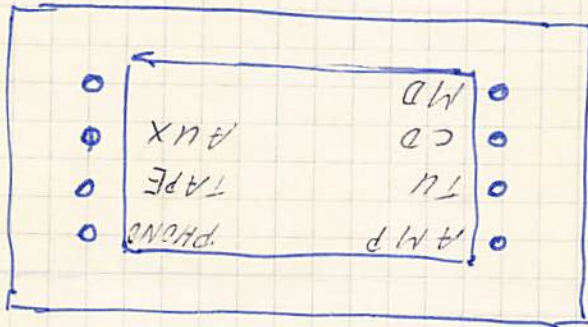 AMP PHONO
TU TAPE
CD AUX
MD